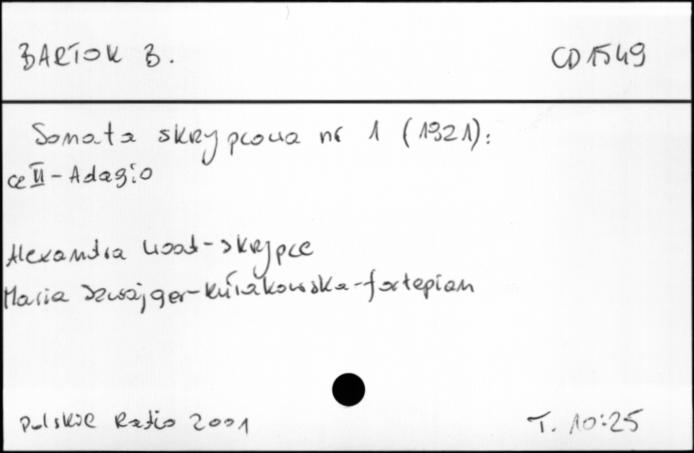 BARTOK B. CD 1549
Sonata skrzypcowa nr 1 (1921):
cz II - Adagio
Alexandra - skrzypce
Maria Szwajger-Kułakowska - fortepian
Polskie Radio 2001 T. 10:25